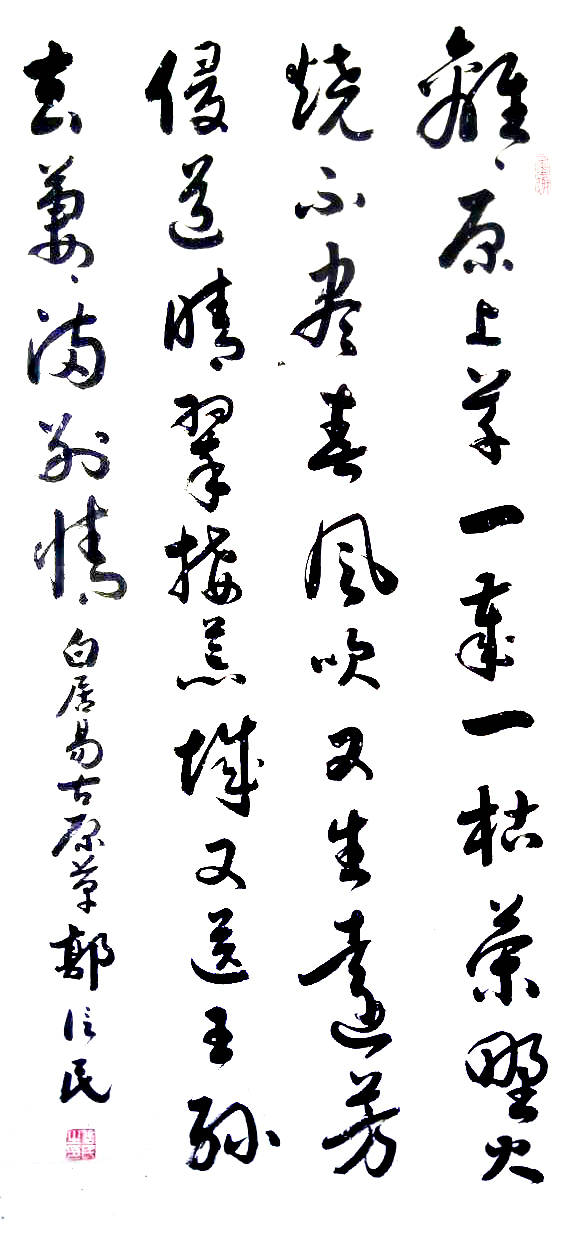 離々原上草一歳一枯榮野火
燒不尽春風吹又生遠芳
侵道晴翠接荒城又送王孫
去萋々滿別情
白居易古原草鄭信民